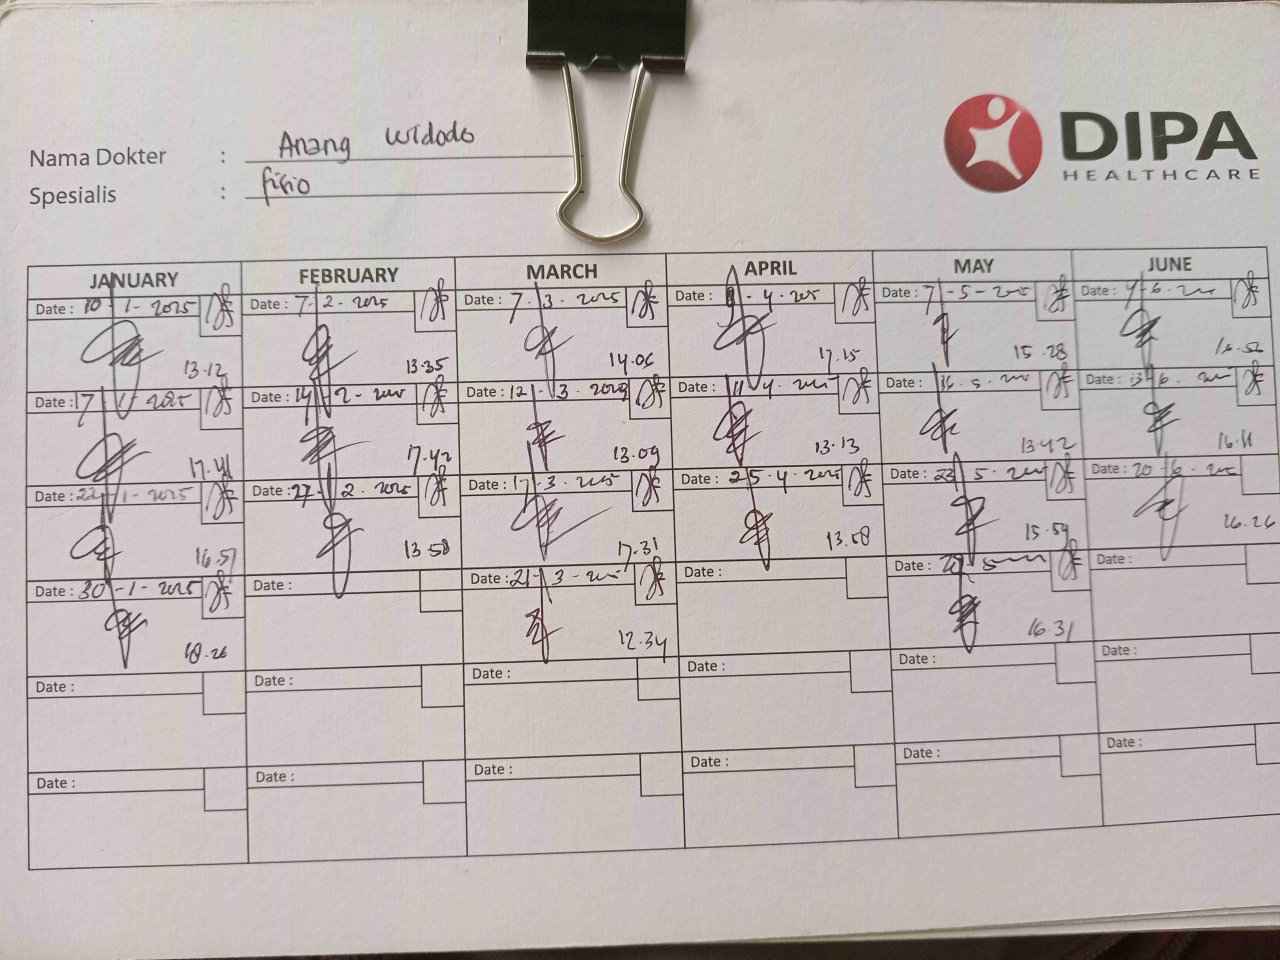 DIPA
HEALTHCARE
Nama Dokter : Anang Widodo
Spesialis : fisio
JANUARY FEBRUARY MARCH APRIL MAY JUNE
Date : 10-1-2025 Date : 7-2-2025 Date : 7-3-2025 Date : -4-2025 Date : 7-5-2025 Date : -6-2025
13.12 13.35 14.06 17.15 15.28
Date : 17-1-2025 Date : 14-2-2025 Date : 12-3-2025 Date : 11-4-2025 Date : 16-5-2025 Date : 13-6-2025
17.41 17.42 13.09 13.13 13.42 16.11
Date : 22-1-2025 Date : 27-2-2025 Date : 17-3-2025 Date : 25-4-2025 Date : 23-5-2025 Date : 20-6-2025
16.57 13.58 17.31 13.58 15.59 16.26
Date : 30-1-2025 Date : Date : 21-3-2025 Date : Date : 5-2025 Date :
18.26 12.34 16.31
Date : Date : Date : Date : Date : Date :
Date : Date : Date : Date : Date : Date :